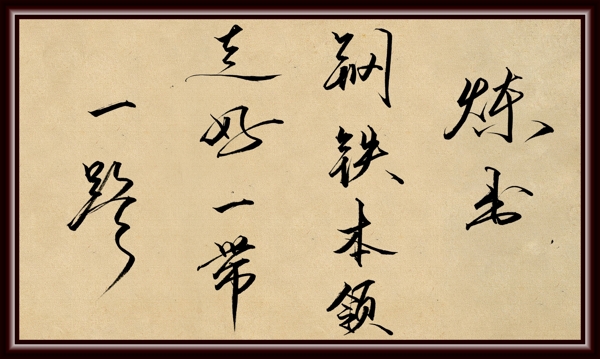 炼出
钢铁本领
走好一带
一路